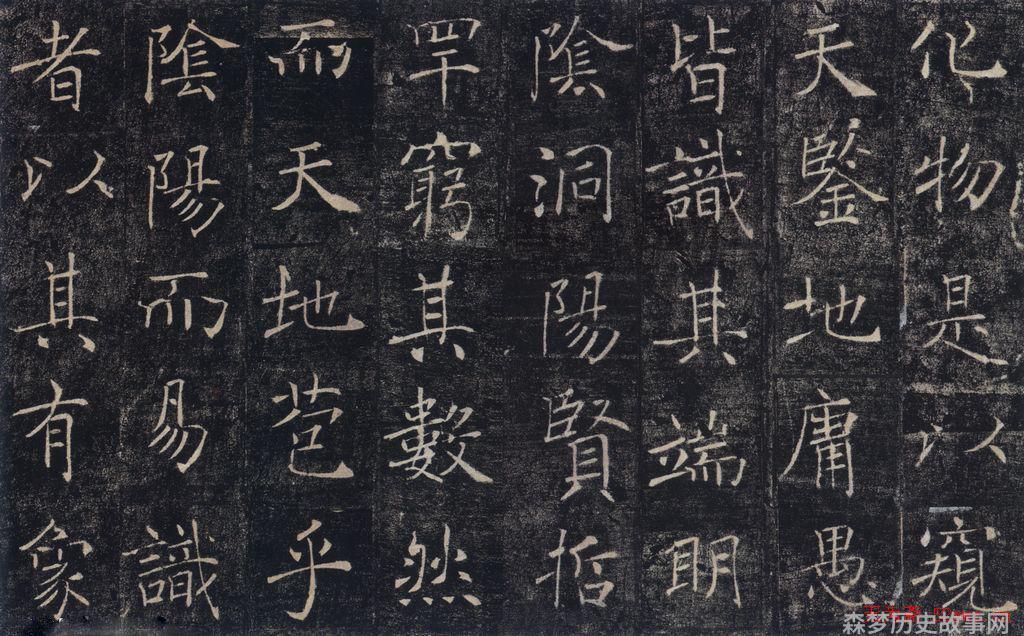 化物是以窺
天鑒地庸愚
皆識其端明
陰洞陽賢哲
罕窮其數然
而天地苞乎
陰陽而易識
者以其有象
森梦历史故事网